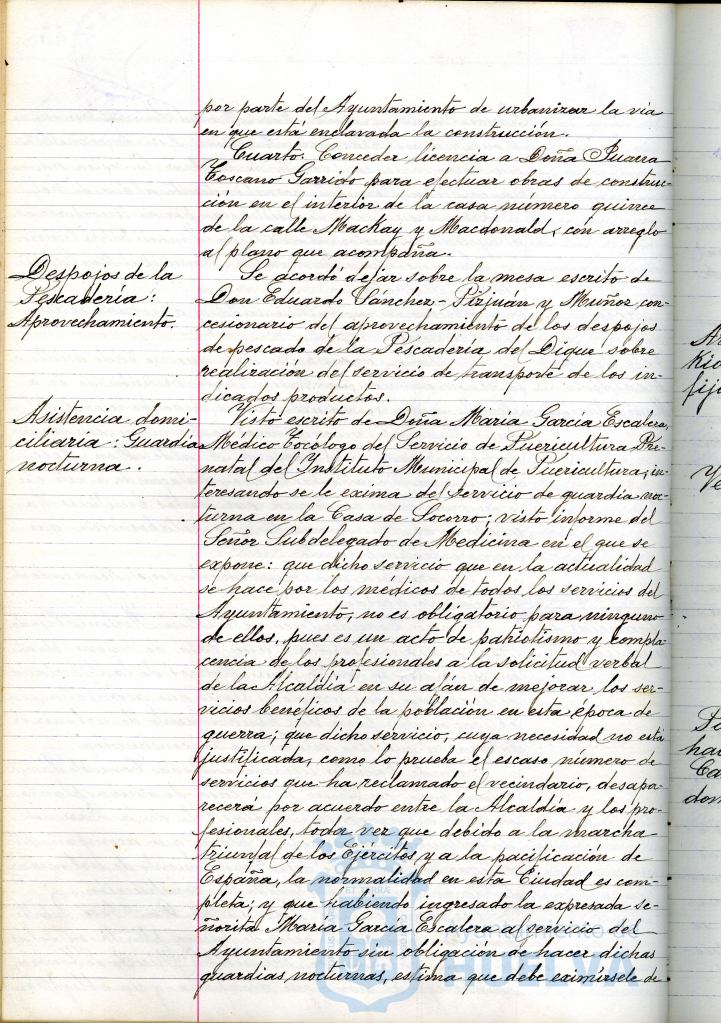 por parte del Ayuntamiento de urbanizar la vía
en que está enclavada la construcción.
Cuarto: Conceder licencia a Doña Juana
Toscano Garrido para efectuar obras de construc-
ción en el interior de la casa número quince
de la calle Mackay y Macdonald, con arreglo
al plano que acompaña.
Despojos de la
Pescadería:
Aprovechamiento.
Se acordó dejar sobre la mesa escrito de
Don Eduardo Sánchez-Pizjuán y Muñoz con-
cesionario del aprovechamiento de los despojos
de pescado de la Pescadería del Dique sobre
realización del servicio de transporte de los in-
dicados productos.
Asistencia domi-
ciliaria: Guardia
nocturna.
Visto escrito de Doña María García Escalera,
Médico Tocólogo del Servicio de Puericultura Pre-
natal del Instituto Municipal de Puericultura, in-
teresando se le exima del servicio de guardia noc-
turna en la Casa de Socorro; visto informe del
Señor Subdelegado de Medicina en el que se
expone: que dicho servicio que en la actualidad
se hace por los médicos de todos los servicios del
Ayuntamiento, no es obligatorio para ninguno
de ellos, pues es un acto de patriotismo y compla-
cencia de los profesionales a la solicitud verbal
de la Alcaldía en su afán de mejorar los ser-
vicios benéficos de la población en esta época de
guerra; que dicho servicio, cuya necesidad no está
justificada, como lo prueba el escaso número de
servicios que ha reclamado el vecindario, desapa-
recerá por acuerdo entre la Alcaldía y los pro-
fesionales, toda vez que debido a la marcha
triunfal de los Ejércitos y a la pacificación de
España, la normalidad en esta Ciudad es com-
pleta; y que habiendo ingresado la expresada se-
ñorita María García Escalera al servicio del
Ayuntamiento sin obligación de hacer dichas
guardias nocturnas, estima que debe eximírsele de